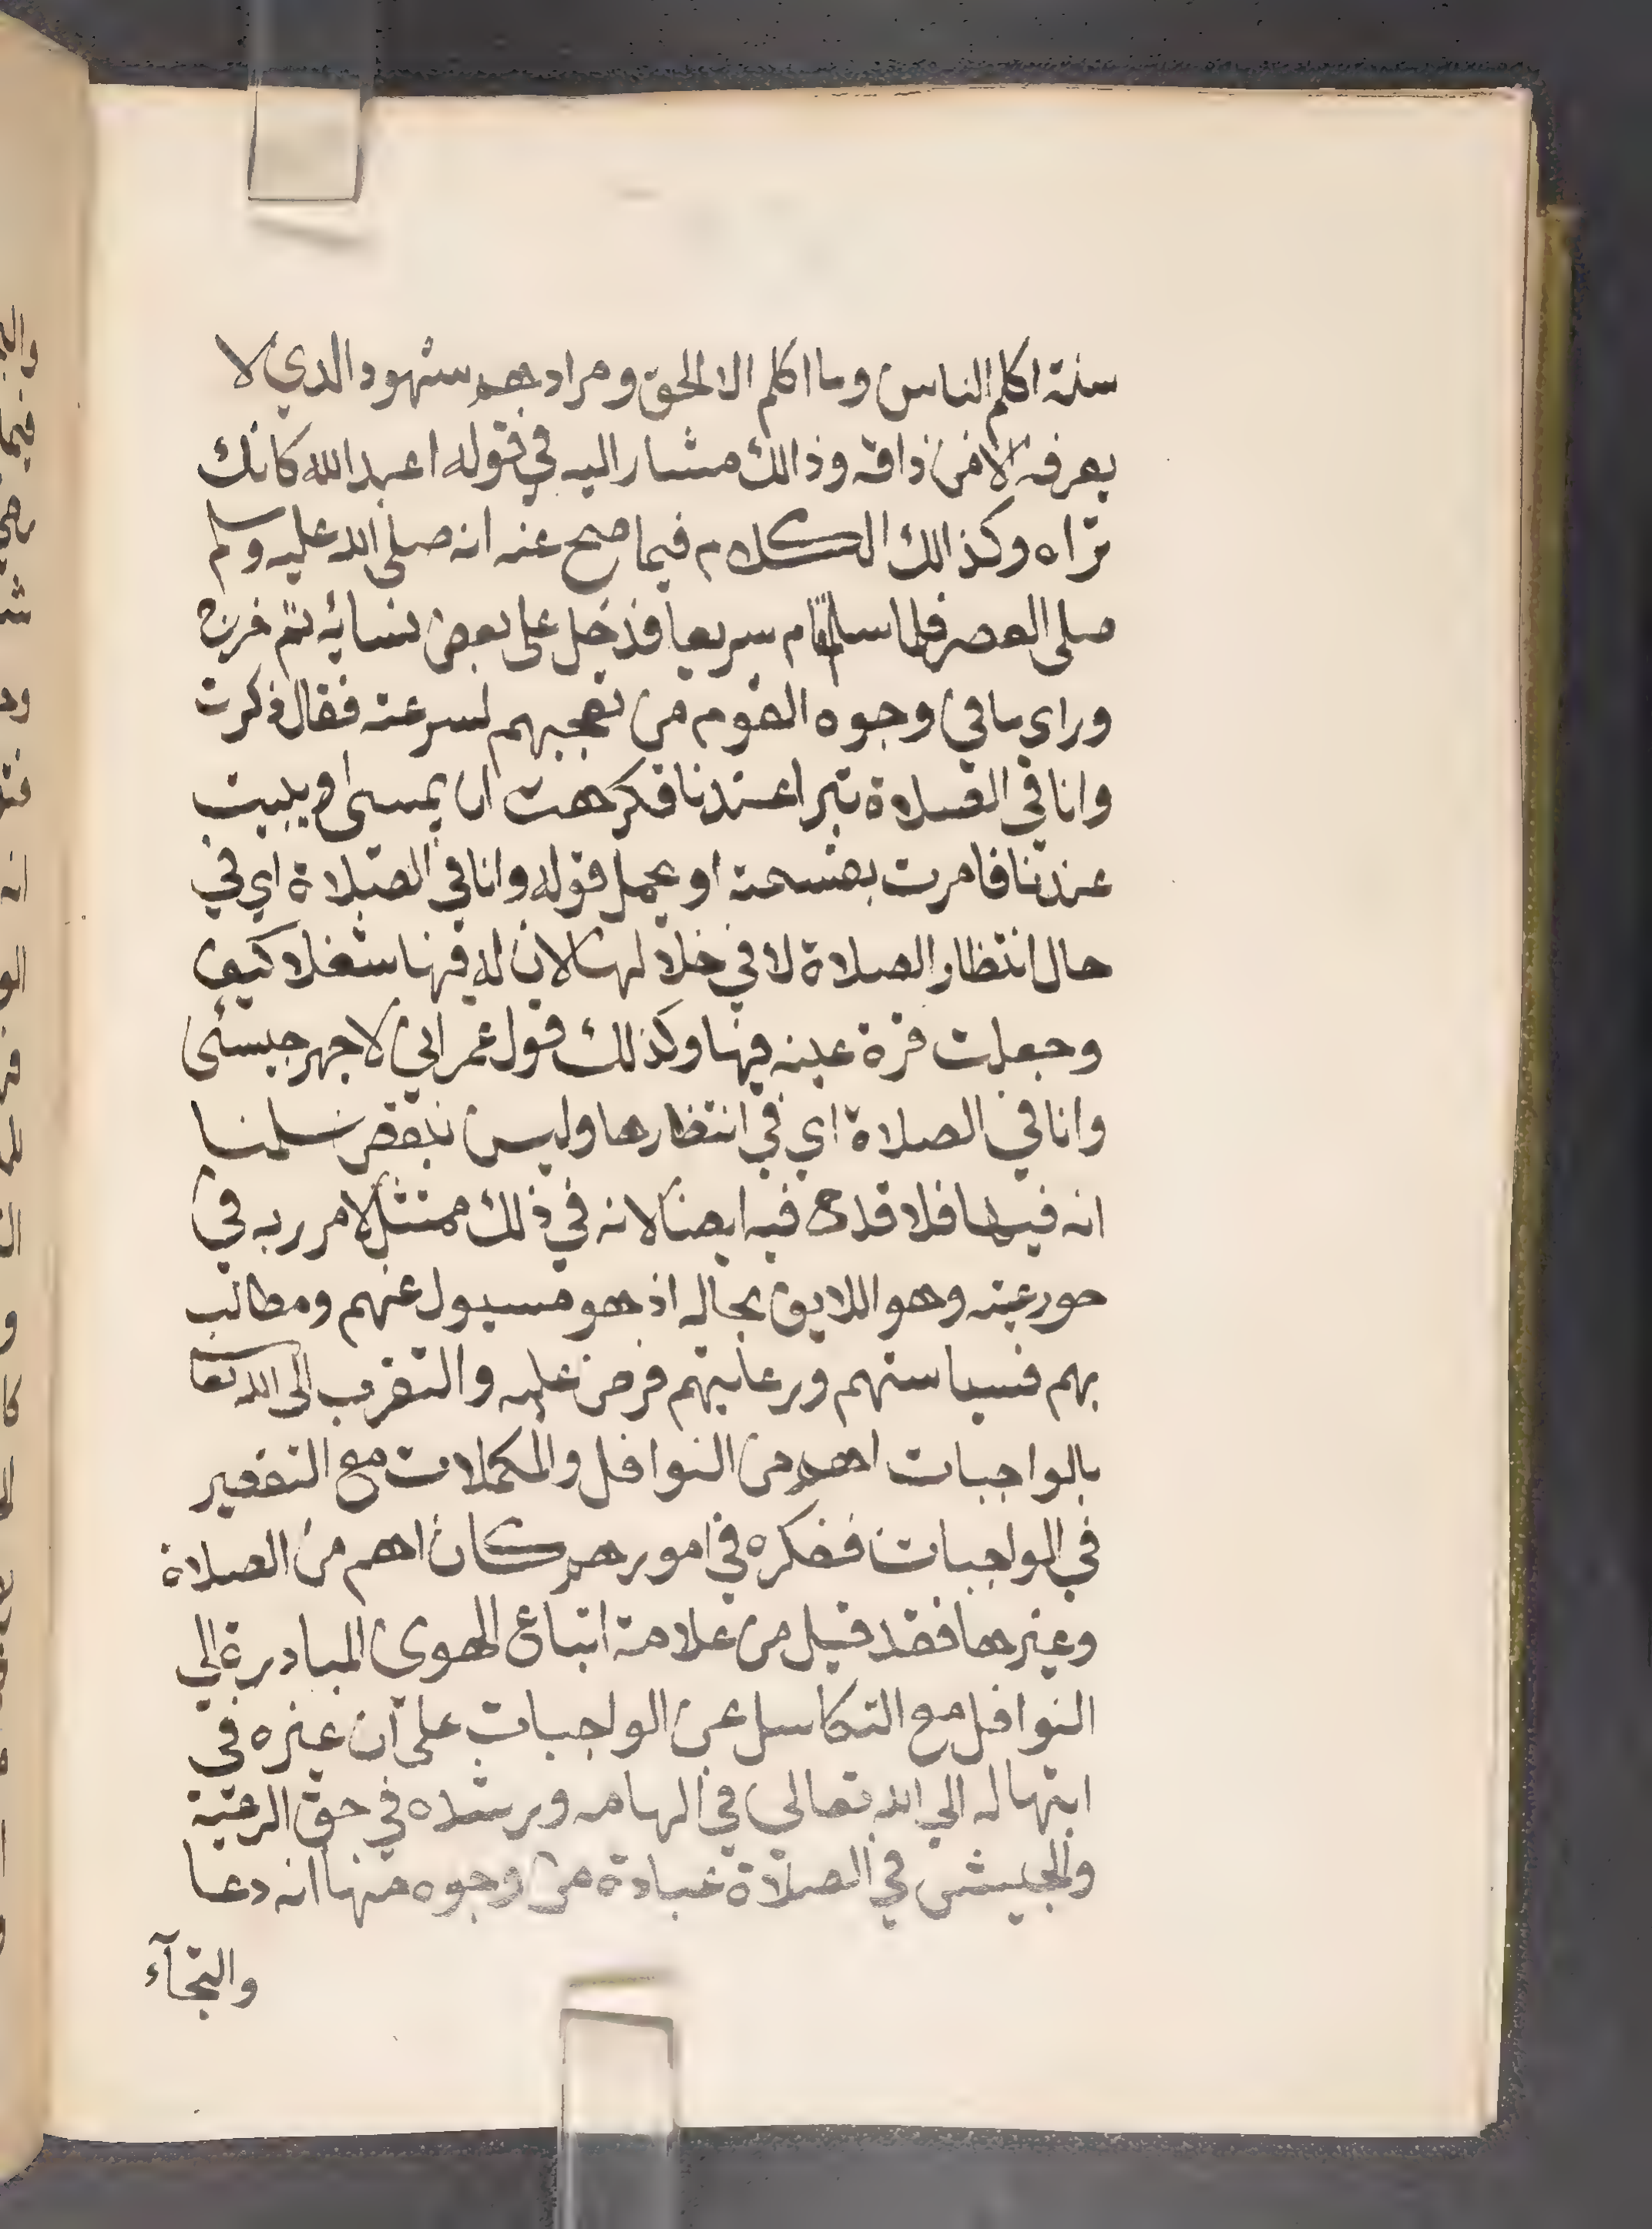 سنة اكلم الناس وما اكلم الا الحق ومرادهم شهود الذي لا
يعرفه الا من ذاقه وذالك مشار اليه في قوله اعبد الله كانك
تراه وكذالك الكلام فيما صح عنه انه صلى الله عليه وسلم
صلى العصر فلما سلم قام سريعا فدخل على بعض نسائه ثم خرج
وراي ما في وجوه القوم من تعجبهم لسرعته فقال ذكرت
وانا في الصلاة تبرا عندنا فكرهت ان يمسى او يبيت
عندنا فامرت بقسمته او يحمل قوله وانا في الصلاة اي في
حال انتظار الصلاة لا في خلالها لان له فيها شغلا كيف
وجعلت قرة عينه فيها وكذلك قول عمر اني لاجهز جيشي
وانا في الصلاة اي في انتظارها وليس بنقص سلمنا
انه فيها فلا قدح فيه ايضا لانه في ذلك ممتثل لامر ربه في
حور عيته وهو اللايق بحاله اذ هو مسيول عنهم ومطالب
بهم فسياستهم ورعايتهم فرض عليه والتقرب الى الله تعا
بالواجبات اهم من النوافل والمكملات مع التقصير
في الواجبات ففكره في امورهم كان اهم من الصلاة
وغيرها فقد قيل من علامة اتباع الهوى المبادرة الي
النوافل مع التكاسل عن الواجبات على ان غيره في
ابتهاله الي الله تعالى في الهامه ورشده في حق الرعية
والجيش في الصلاة عبادة من وجوه منها انه دعا
والتجآء